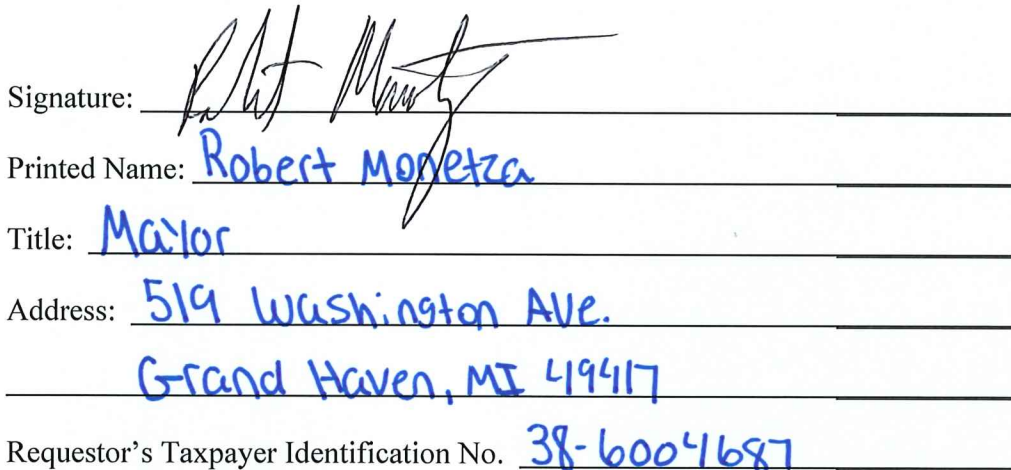 Signature:
Printed Name: Robert Monetza
Title: Mayor
Address: 519 Washington Ave.
Grand Haven, MI 49417
Requestor's Taxpayer Identification No. 38-6004687